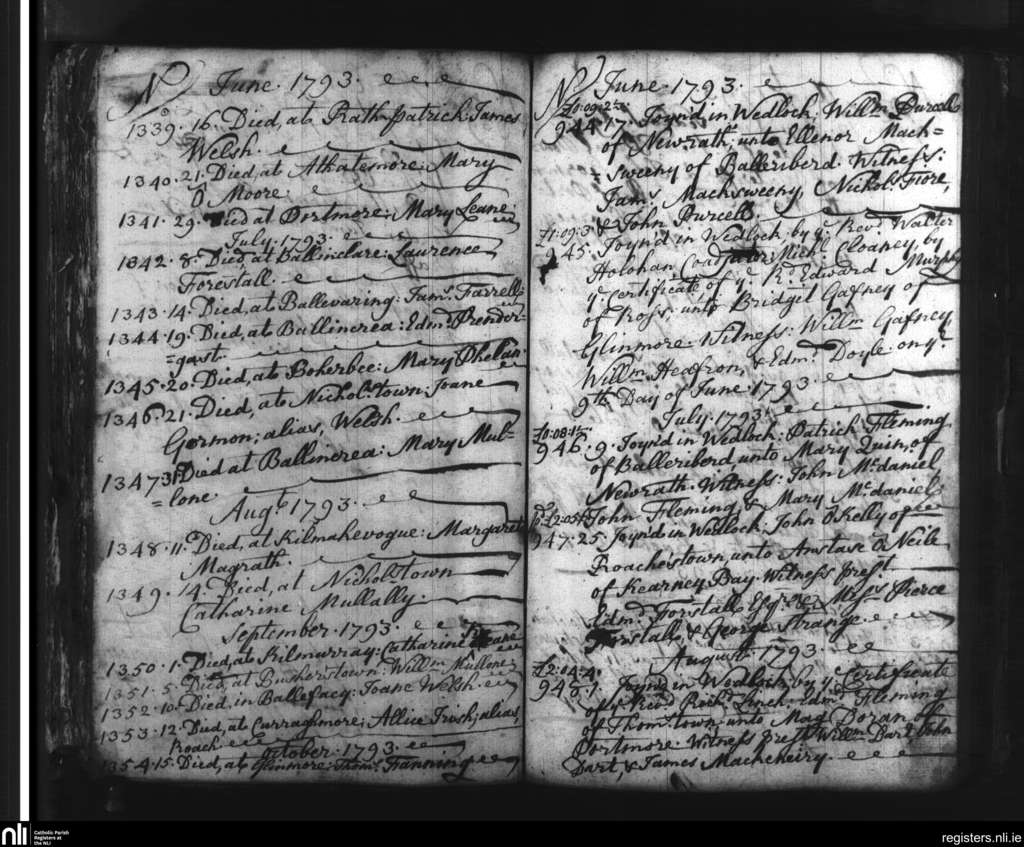 No June. 1793.
1339. 16. Died, at Rath-patrick James
Welsh.
1340. 21. Died, at Athatemore: Mary
O Moore.
1341. 29. Died at Portmore: Mary Leane:
July. 1793.
1342. 8. Died, at Ballinclare: Laurence
Forestall.
1343. 14. Died, at Ballevaring: Jams. Farrell:
1344. 19. Died, at Ballincrea: Edmd. Prender=
=gast.
1345. 20. Died, at Boherbee: Mary Phelan
1346. 21. Died, at Nichols.town: Joane
Gormon; alias, Welsh.
1347 31 Died at Ballincrea: Mary Mul=
=lone.
Augt. 1793.
1348. 11. Died, at Kilmakevogue: Margaret
Magrath.
1349. 14. Died, at Nichols.town
Catharine Mullally.
September. 1793.
1350. 1. Died, at Kilmurray: Catharine
1351. 5. Died, at Busherstown: Willm. Mullone
1352. 10. Died, in Ballefacy: Joane Welsh.
1353. 12. Died, at Curraghmore; Allice Irish; alias,
Roach.
October. 1793.
1354. 15. Died, at Glinmore: Thoms. Fanning
No June. 1793.
£0:09:2
944. 17. Joyn'd in Wedlock: Willm. Purcell
of Newrath; unto Ellenor Mach=
+ sweeny of Balleriberd. Witness:
Jams. Machsweeny, Nichols. Fiore,
& John Purcell.
£1:09:3
945. Joyn'd in Wedlock, by ye. Revd. Walter
Holohan, Michl. Cloaney, by
ye. Certificate of ye. Rd. Edward Murphy
of Ross: unto Bridgit Gafney of
Glinmore. Witness: Willm. Gafney
Willm. Heafron, & Edmd. Doyle on ye.
9th. Day of June. 1793.
July. 1793.
£0:08:1
946. 9. Joyn'd in Wedlock: Patrick Fleming
of Balleriberd, unto Mary Quin, of
Newrath. Witness: John Mc.daniel,
John Fleming & Mary Mc.daniel:
947. 25. Joyn'd in Wedlock: John O'Kelly of
Roachestown, unto Anstace O Neile
of Kearney Bay. Witness prest.
Edmd. Forstall Esqre. & Miss Pierce
Forstall, & George Strange.
August. 1793.
£2:04:4
948. 1. Joyn'd in Wedlock, by ye. Certificate
of ye. Revd. Richd. Lynch: Edmd. Fleming
of Thoms.town: unto Mag. Doran of
Portmore. Witness prest. Willm. Dart, John
Dart, & James Macheheiry.
nli
Catholic Parish
Registers at
the NLI
registers.nli.ie